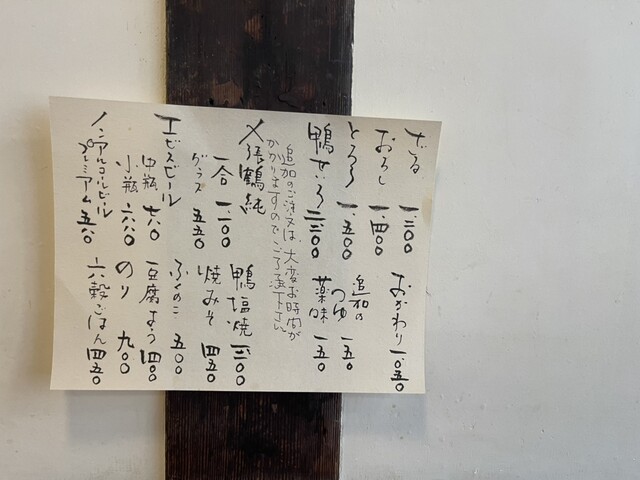 ざる 一、三〇〇
おろし 一、四〇〇
とろろ 一、五〇〇
鴨せいろ 二、二〇〇
追加のご注文は、大変お時間が
かかりますのでご了承下さい
〆張鶴 純
一合 一、一〇〇
グラス 五五〇
エビスビール
中瓶 七八〇
小瓶 六八〇
ノンアルコールビール
プレミアム 五八〇
おかわり 一、〇五〇
追加の
つゆ 一五〇
薬味 一五〇
鴨塩焼
焼みそ 四五〇
ふくのこ 五〇〇
豆腐よう 四〇〇
のり 九〇〇
六穀ごはん 四五〇